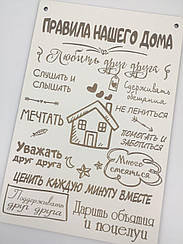 ПРАВИЛА НАШЕГО ДОМА
Любить друг друга
СЛУШАТЬ И
СЛЫШАТЬ
Сдерживать
обещания
НЕ ЛЕНИТЬСЯ
МЕЧТАТЬ
ПОМОГАТЬ И
ЗАБОТИТЬСЯ
Уважать
друг друга
Много
смеяться
ЦЕНИТЬ КАЖДУЮ МИНУТУ ВМЕСТЕ
Поддерживать
друг друга
Дарить объятия
и поцелуи